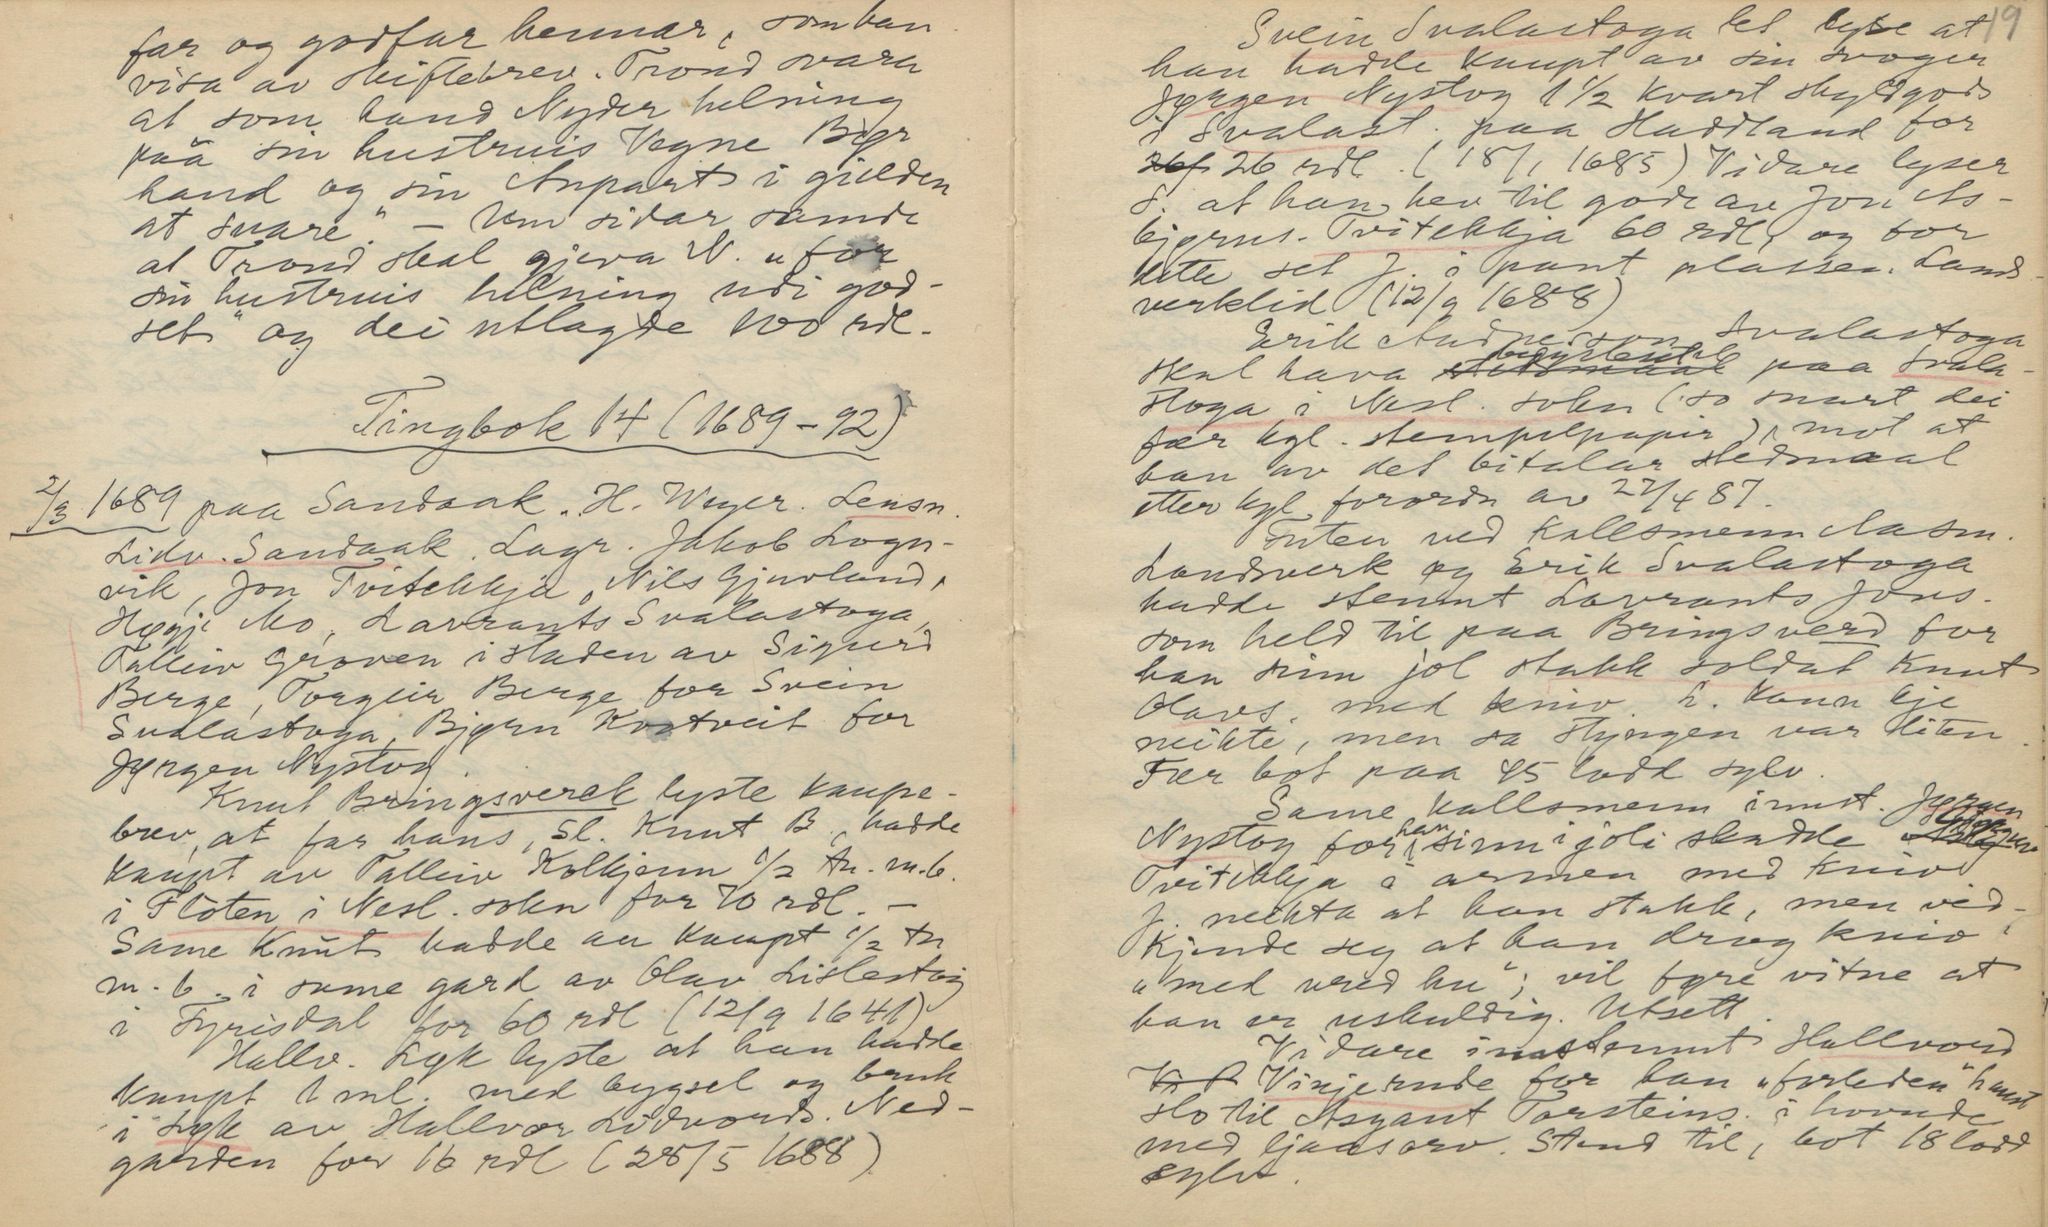 far og godfar hennar, som han
visa av skiftebrev. Trond svara
at som hand Nyder helning
paa sin hustruis Vegne Bør
hand og sin Anpart i gielden
at svare." – Um sidar samde
at Trond skal gjeva N. "for
sin hustruis helning udi god-
set" og dei utlagde 100 rdl.
Tingbok 14 (1689–92)
2/3 1689 paa Sandaak. H. Weyer. Lensn.
Lidv. Sandaak. Lagr. Jakob Logn-
vik, Jon Tvitekkja, Nils Gjuvland,
Høgje Mo, Lavrants Svalastoga,
Talleiv Groven i staden av Sigurd
Berge, Torgeir Berge for Svein
Svalastoga, Bjørn Kostveit for
Jørgen Nystog.
Knut Bringsverck lyste kaupe-
brev, at far hans, Sl. Knut B., hadde
kaupt av Talleiv Kolkjønn 1/2 tn. m.b.
i Floten i Nesl. sokn for 70 rdl. –
Same Knut hadde au kaupt 1/2 tn
m. b. i same gard av Olav Lislestog
i Fyrisdal for 60 rdl (12/9 1641)
Hallv. Løk lyste at han hadde
kaupt 1 ml. med bygsel og bruk
i Løk av Hallvor Lidvords. Ned-
garden for 16 rdl (28/5 1688)
19
Svein Svalastoga let lyse at
han hadde kaupt av sin svoger
Jørgen Nystog 1 1/2 kvart skyldgods
i Svalast. paa Haddland for
26 rdl. (18/1 1685) Vidare lyser
S. at han hev til gode av Jon As-
bjørns. Tvitekkja 60 rdl, og for
dette set J. i pant plassen Lands-
verklid (12/9 1688)
Erik Audneson Svalastoga
skal hava bygslesetel paa Svala-
stoga i Nesl. sokn (so snart dei
fær kgl. stempelpapir), mot at
han av det bitalar stedmaal
etter kgl. forordn av 22/4 87.
Futen ved Kallsmenn Aasm.
Landsverk og Erik Svalastoga
hadde stemnt Lavrants Jons.
som held til paa Bringsverd for
han sinn jol stakk soldat Knut
Olavs. med kniv. L. kann kje
neikte, men sa styngen var liten.
Fær bot paa 45 lodd sylv.
Same kallsmenn innst. Jørgen
Nystog for han sinn i joli skadde
Tvitekkja i armen med kniv
J. neikta at han stakk, men ved-
kjende seg at han drog kniv i
"med vred hu"; vil føre vitne at
han er uskuldig. Utsett.
Vidare innstemnt Hallvord
Vinjerude for han "forleden" haust
slo til Asgaut Torsteins. i hovude
med ljaasorv. Stend til, bot 18 lodd
sylv.